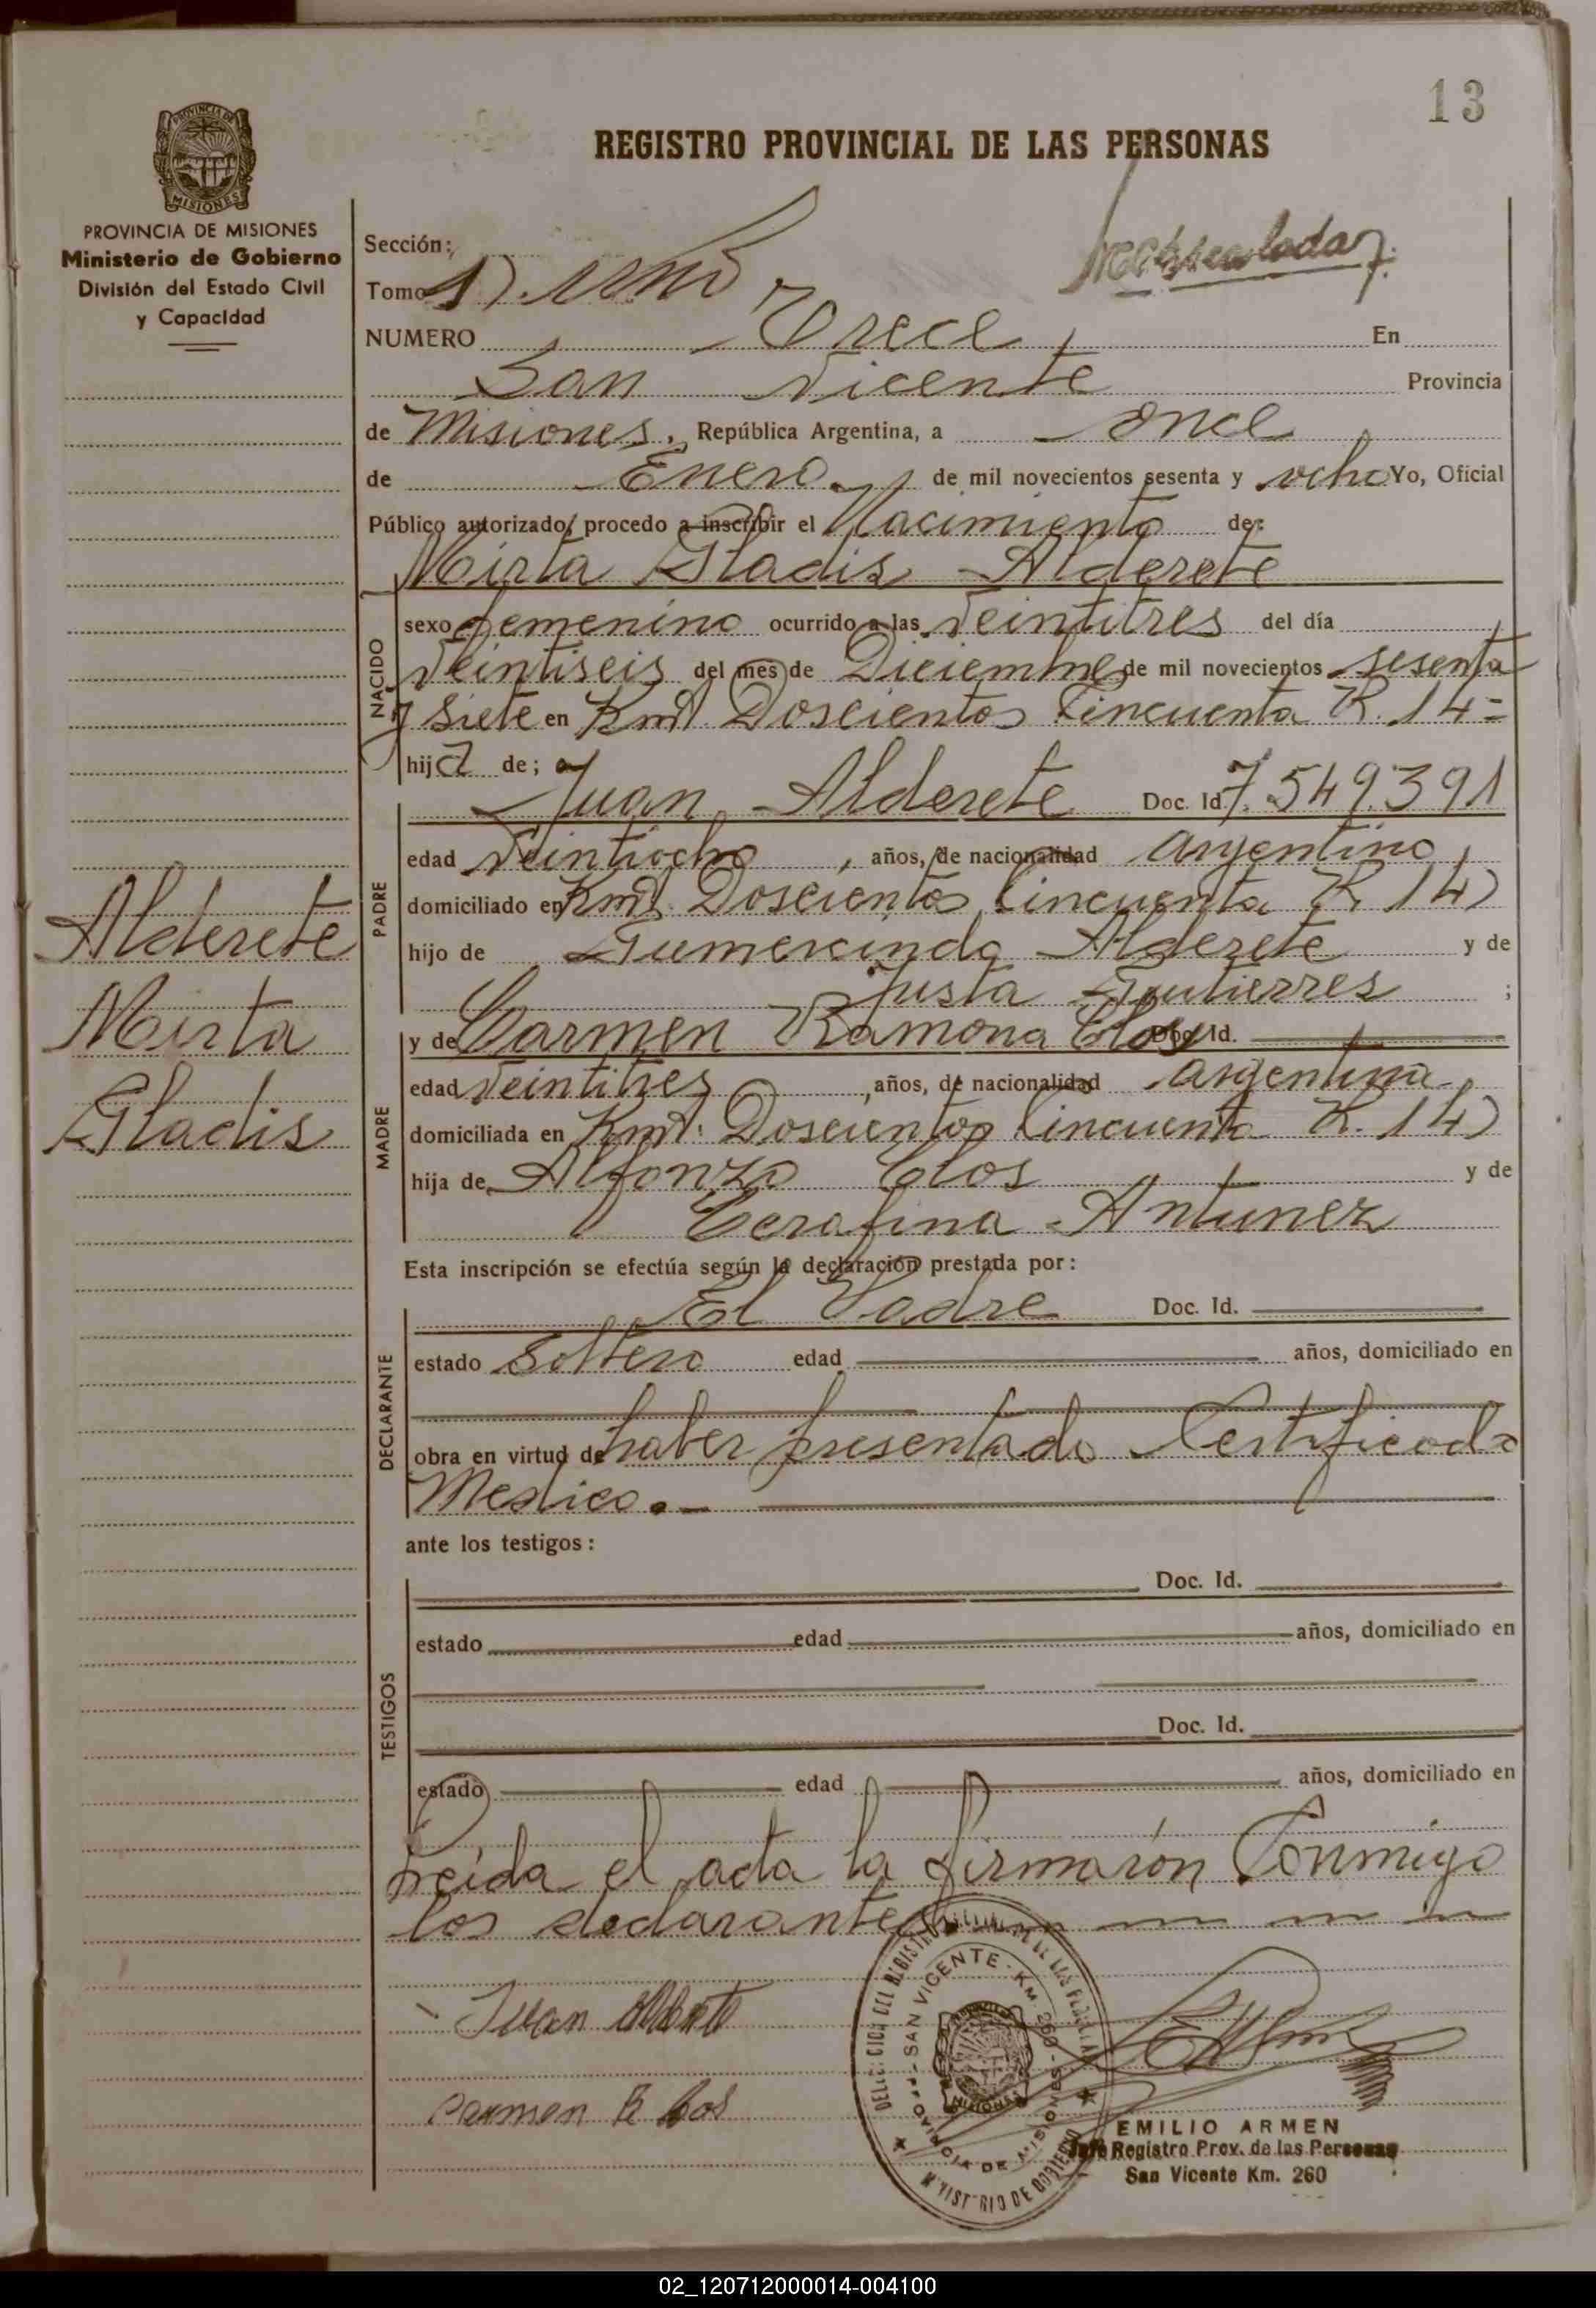 13
REGISTRO PROVINCIAL DE LAS PERSONAS
PROVINCIA DE
MISIONES
PROVINCIA DE MISIONES
Ministerio de Gobierno
División del Estado Civil
y Capacidad
Sección:
Tomo 1) uno
NUMERO Trece En
San Vicente Provincia
de Misiones. República Argentina, a once
de Enero. de mil novecientos sesenta y ocho Yo, Oficial
Público autorizado, procedo a inscribir el Nacimiento de:
Mirta Gladis Alderete
NACIDO
sexo femenino ocurrido a las veintitres del día
veintiseis del mes de Diciembre de mil novecientos sesenta
y siete en Kmt. Doscientos Cincuenta R. 14-
hija de;
PADRE
Juan Alderete Doc. Id. 7.549.391
edad veintiocho, años, de nacionalidad argentino,
domiciliado en Kmt. Doscientos Cincuenta R 14)
hijo de Gumercindo Alderete y de
Justa Gutierres ;
MADRE
y de Carmen Ramona Clos Doc. Id.
edad veintitres, años, de nacionalidad argentina,
domiciliada en Kmt. Doscientos Cincuenta R. 14)
hija de Alfonzo Clos y de
Cerafina Antunez
Esta inscripción se efectúa según la declaración prestada por:
DECLARANTE
El Padre Doc. Id.
estado Soltero edad años, domiciliado en
obra en virtud de haber presentado Certificado
Medico.-
ante los testigos:
TESTIGOS
Doc. Id.
estado edad años, domiciliado en
Doc. Id.
estado edad años, domiciliado en
Leida el acta la firmarón Conmigo
los declarantes
Alderete
Mirta
Gladis
Juan
Carmen R
SAN VICENTE - KM. 260 -
PROVINCIA DE MISIONES
MINISTERIO DE GOBIERNO
MISIONES
EMILIO ARMEN
Jefe Registro Prov. de las Personas
San Vicente Km. 260
02_120712000014-004100